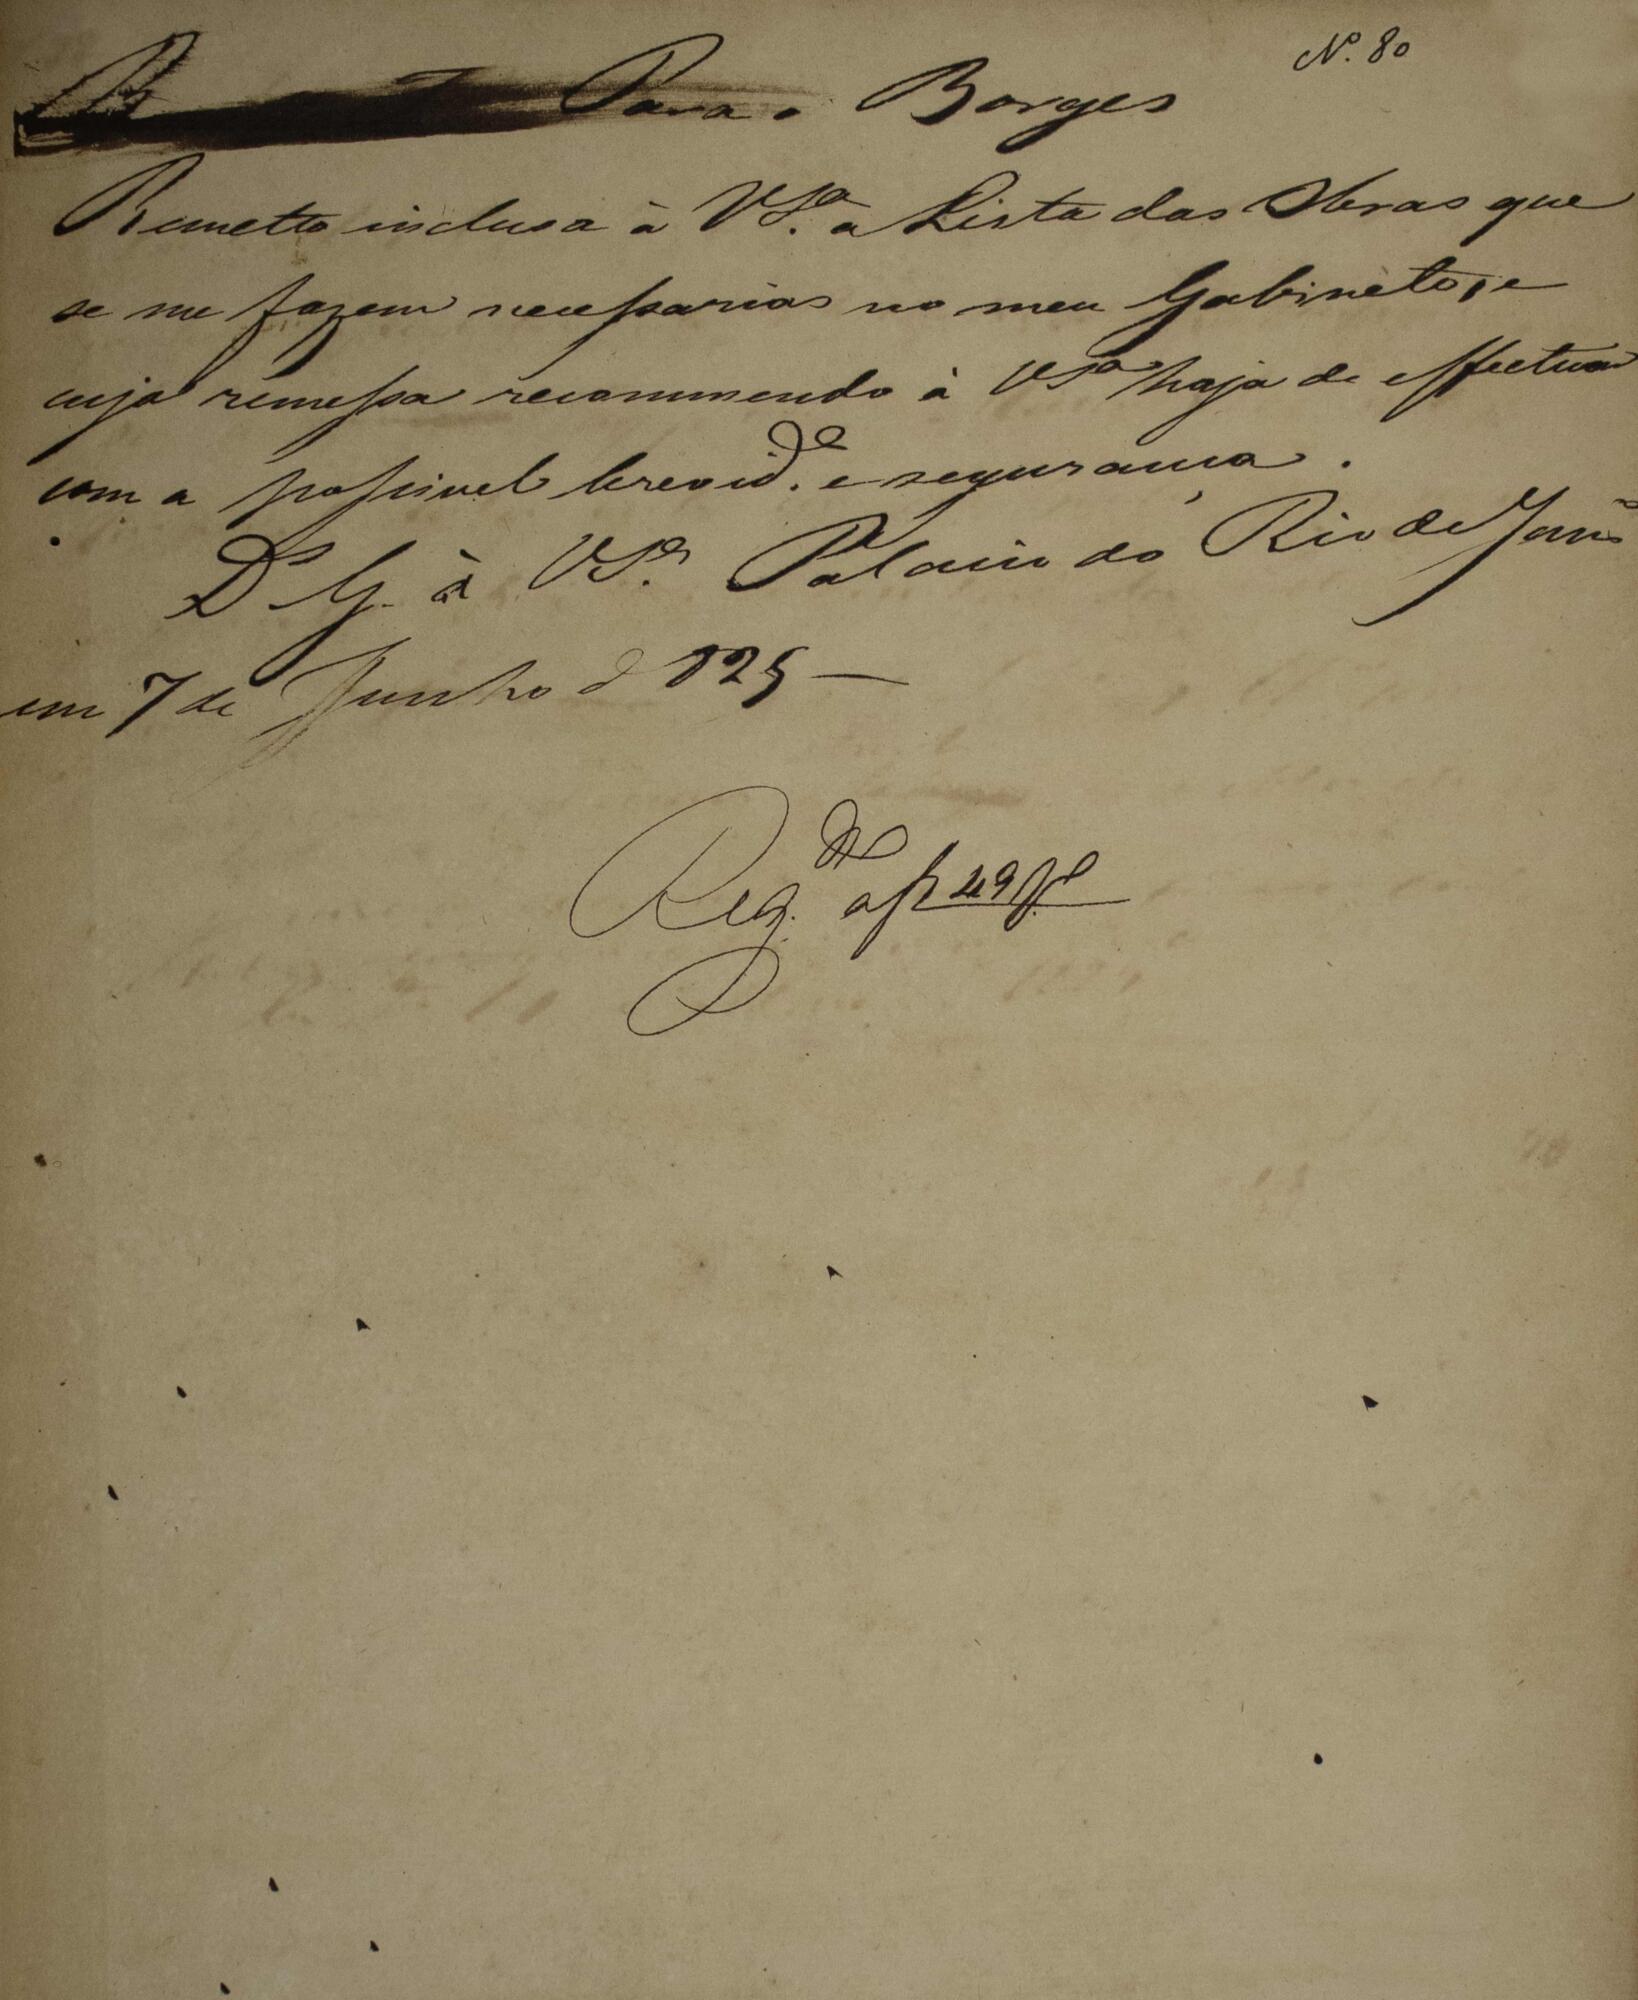 Nº. 80
Para o Borges
Remetto inclusa à VSª. a Lista das Obras que
se me fazem necessarias no meu Gabinete, e
cuja remessa recommendo à VSª haja de effectuar
com a possivel brevidᵉ. e segurança.
Dˢ G. à VSª. Palacio do Rio de Janrº
em 7 de Junho d 825 —
Regᵈᵒ. a f 49 vº